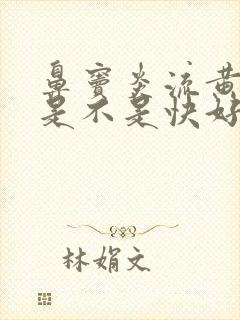 鼻窦炎流黄
是不是快好
林娟文